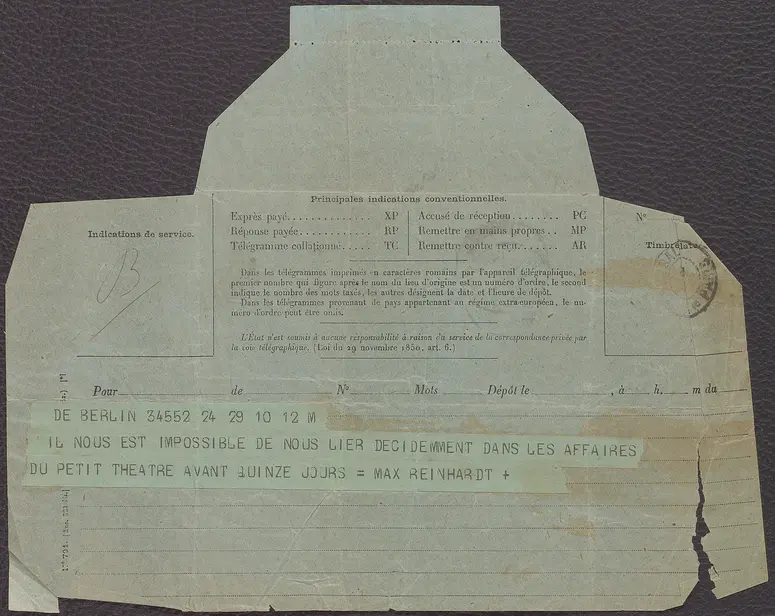 Principales indications conventionnelles.
Exprès payé.............. XP
Réponse payée............ RP
Télégramme collationné..... TC
Accusé de réception........ PC
Remettre en mains propres.. MP
Remettre contre reçu....... AR
Indications de service.
B
N°
Timbre à date
Dans les télégrammes imprimés en caractères romains par l'appareil télégraphique, le
premier nombre qui figure après le nom du lieu d'origine est un numéro d'ordre, le second
indique le nombre des mots taxés, les autres désignent la date et l'heure de dépôt.
Dans les télégrammes provenant de pays appartenant au régime extra-européen, le nu-
méro d'ordre peut être omis.
L'État n'est soumis à aucune responsabilité à raison du service de la correspondance privée par
la voie télégraphique. (Loi du 29 novembre 1850, art. 6.)
Pour de N° Mots Dépôt le , à h, m du
DE BERLIN 34552 24 29 10 12 M
IL NOUS EST IMPOSSIBLE DE NOUS LIER DECIDEMMENT DANS LES AFFAIRES
DU PETIT THEATRE AVANT QUINZE JOURS = MAX REINHARDT +